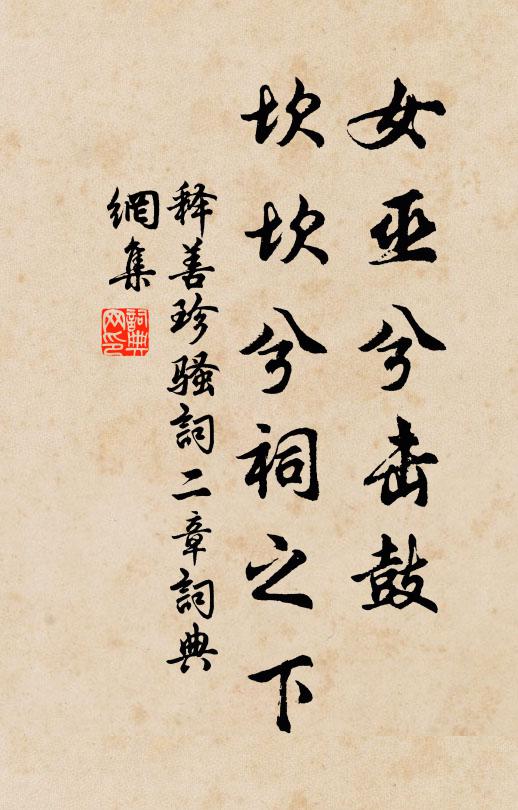 女巫兮击鼓
坎坎兮祠之下
释善珍骚詞二章詞典
網集
詞典
网印